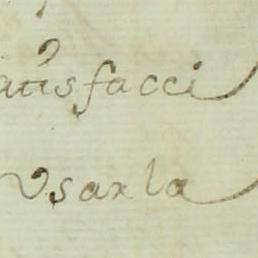 atisfacci
Vsarla